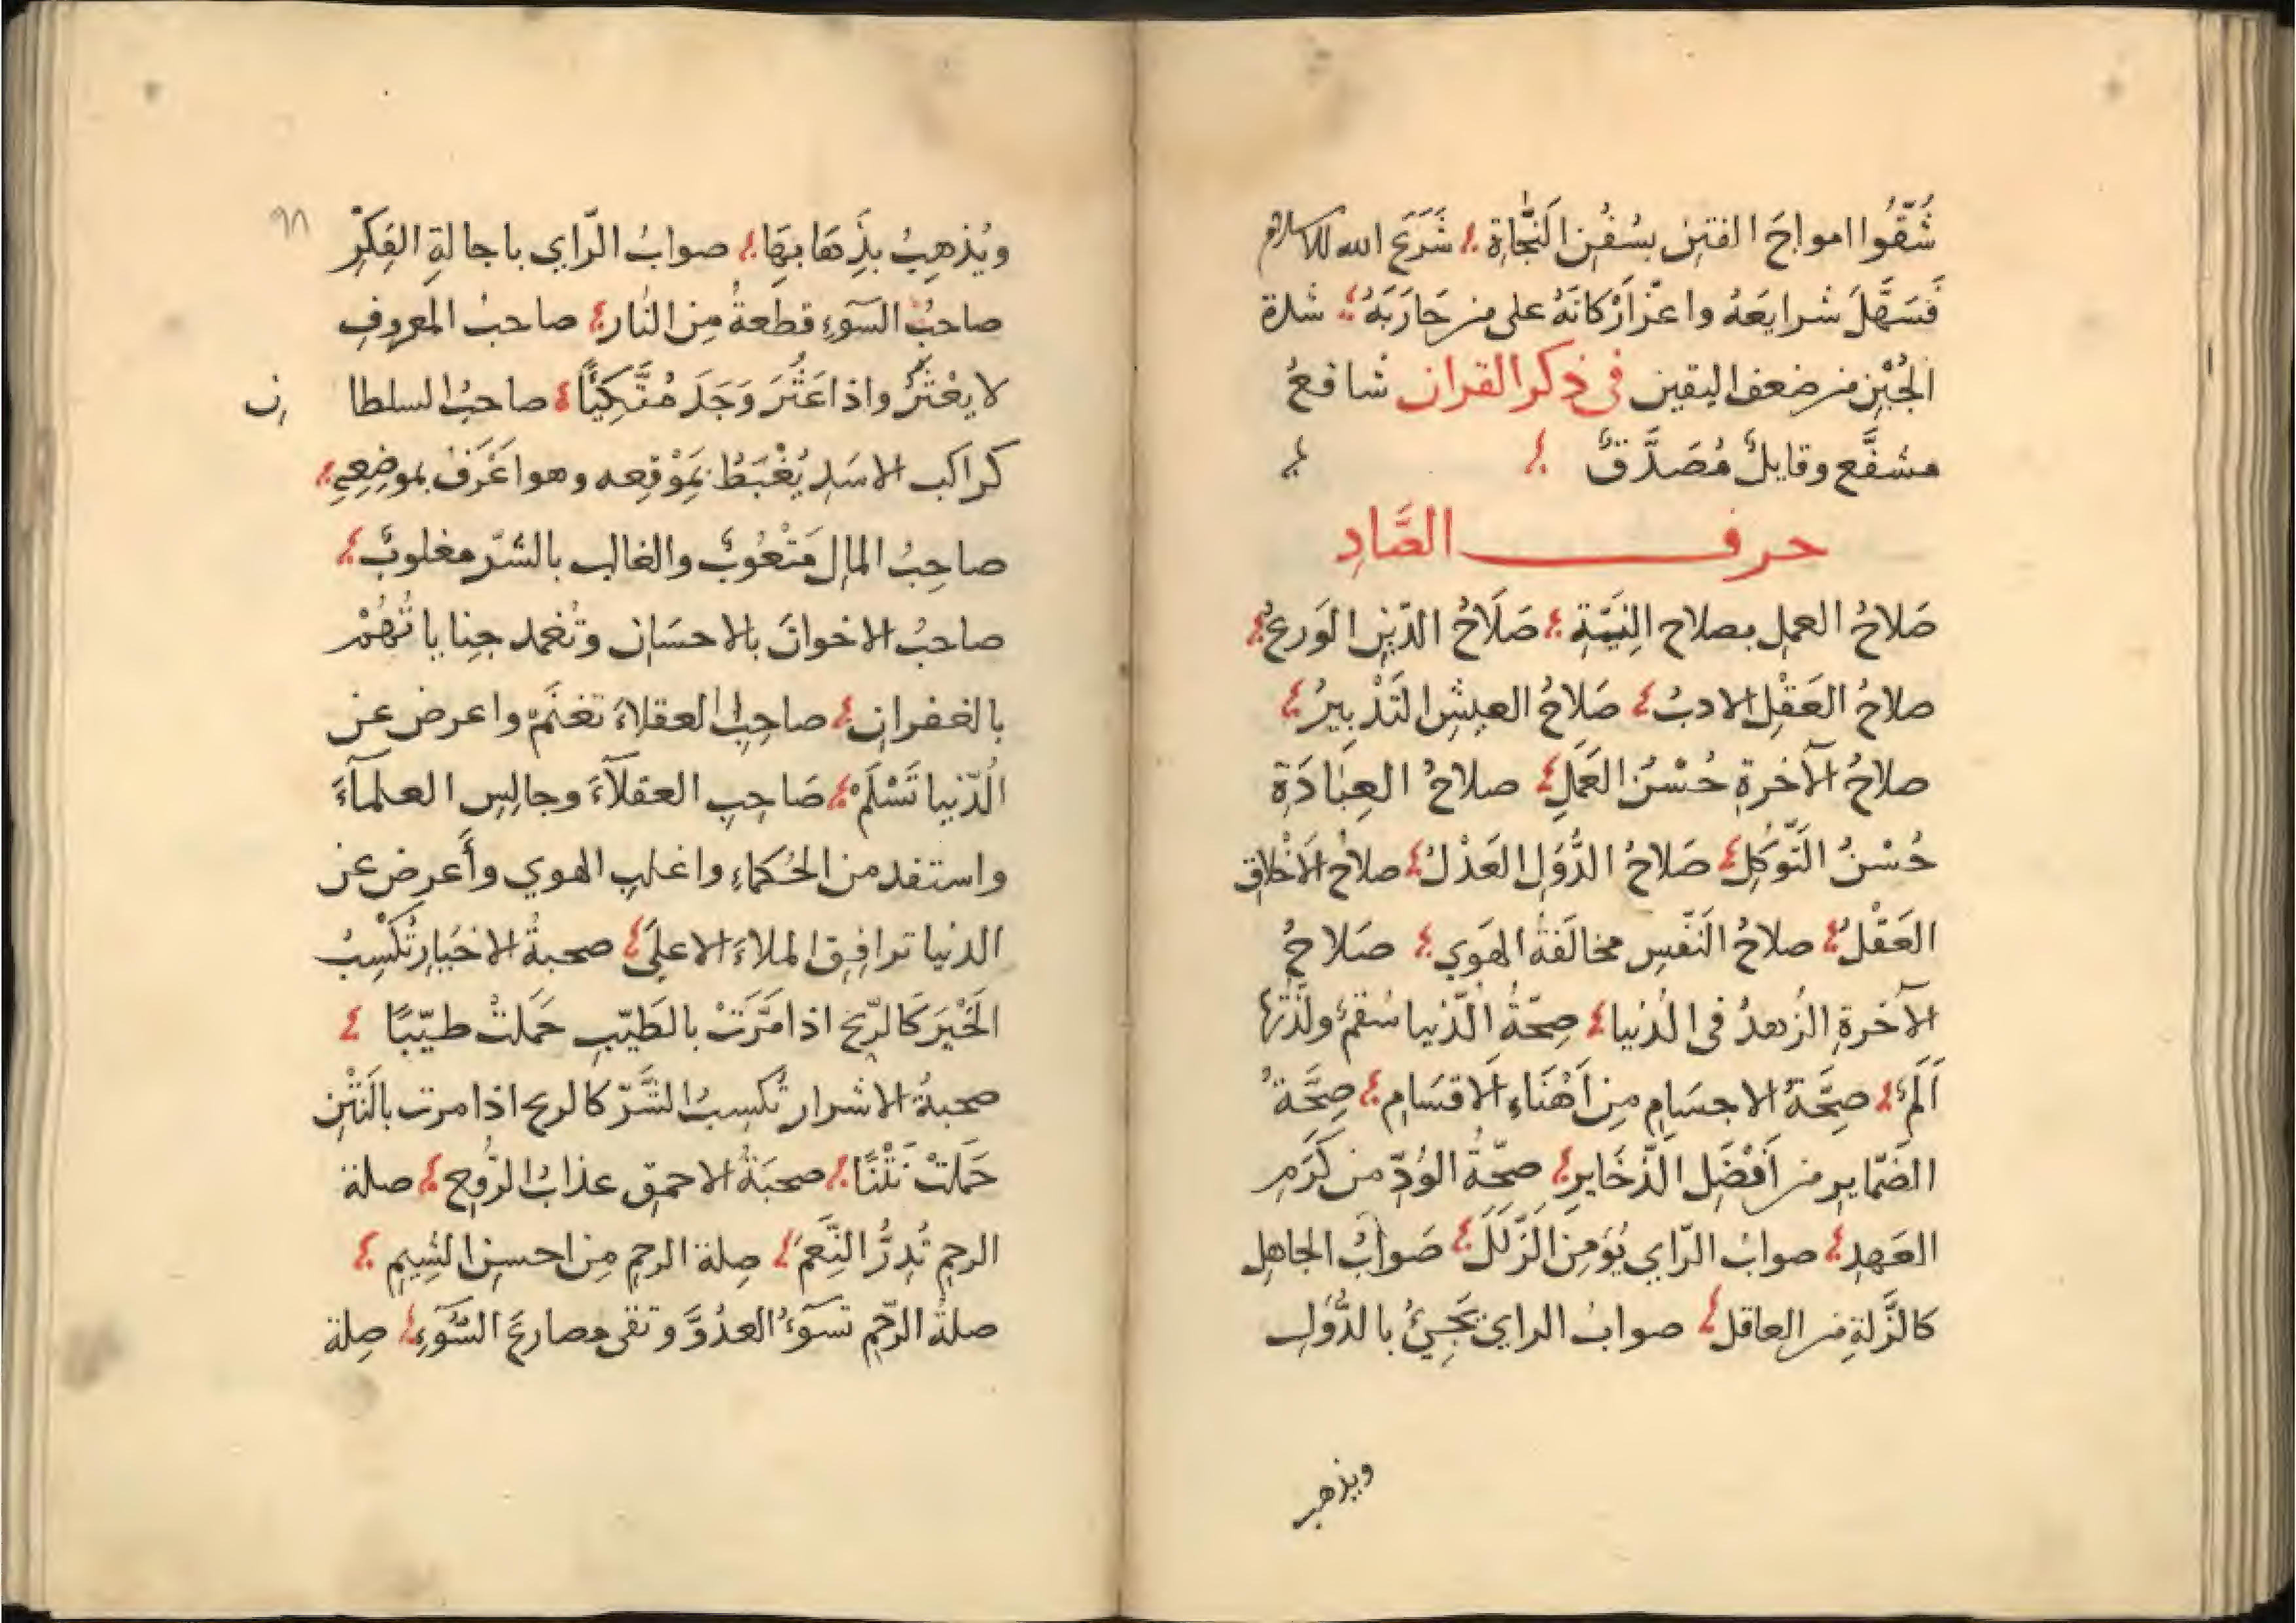 شُقُّوا امواجَ الفتنِ بسُفُنِ النَّجاةِ شَرَعَ الله للاسلام
فَسَهَّلَ شرايعَهُ واعزّ اَرْكانَهُ على من حَارَبَهُ شدة
الجُبْنِ من ضعف اليقين فى ذكر القران شافعٌ
مشفَّع وقايلٌ مُصَدَّقٌ
حرف الصَّادِ
صَلاحُ العملِ بصلاح النِيَّةِ صَلَاحُ الدّينِ الوَرعُ
صلاحُ العَقْلِ الادبُ صَلاحُ العيشِ التَدْبِيرُ
صلاحُ الآخرةِ حُسْنُ العَمَلِ صلاحُ العِبَادَةِ
حُسْنُ التَّوكلِ صَلاحُ الدُّوَلِ العَدْلُ صلاحُ الاَخْلاقِ
العَقْلُ صلاحُ النَفْسِ مخالَفَةُ الهَوي صَلاحُ
الآخرةِ الزُهدُ فى الدُنيا صِحّةُ الدّنيا سُقمٌ ولذّتُها
اَلَمٌ صِحَّةُ الاجسَامِ مِن اَهْنَاءِ الاَقسَامِ صِحَّةُ
الضَمّايرِ من اَفْضَلِ الذَّخَايرِ صحّةُ الوُدِّ من كَرَمِ
العَهدِ صوابُ الرّاي يُؤمِنُ الزَّلَلَ صَوابُ الجاهلِ
كالزَّلةِ من العاقل صوابُ الراي يَجِيئُ بالدُّوَلِ
ويذهب
٩٨
ويُذهِبُ بذِهَابِهَا صوابُ الرّاي باجالةِ الفِكْرِ
صاحبُ السَوءِ قطعةٌ مِن النَار صاحبُ المعروفِ
لا يعْثَرُ واذا عَثُرَ وَجَدَ مُتَّكِئًا صاحبُ السلطا ن
كراكب الاسَدِ يُغْبَطُ بمَوْقِعه وهو اَعْرَفُ بموضِعِهِ
صاحِبُ المالِ مَتْعُوبٌ والغالب بالشرّ مغلوبٌ
صاحبُ الاخوانَ بالاحسَانِ وتُغمد جناياتُهُمْ
بالغفرانِ صاحِبِ العقلاءَ تغنَمْ واعرض عن
الُدّنيا تَسْلَمْ صَاحِبِ العقلآءَ وجالِسِ العلمآءَ
واستفد من الحُكماءِ واغلبِ الهوي وأَعرِض عن
الدنيا توافِقِ الملاءَ الاعلَى صحبةُ الاخيَارِ تُكْسِبُ
الخَيْرَ كَالرّيحِ اذا مَرَّتْ بالطَيّبِ حَمَلتْ طيّبًا
صحبةُ الاشرار تُكسِبُ الشَّرّ كالريح اذا مرت بالنَتْنِ
حَمَلتْ نَتْنًا صحبَةُ الاحمقِ عذابُ الرُّوحِ صلة
الرحمِ تُدِرُّ النِّعَمَ صِلة الرحمِ مِن احسنِ الشِيمِ
صلةُ الرّحِمِ تسوءُ العدُوَّ وتقى مصارعَ السُّوءِ صِلة